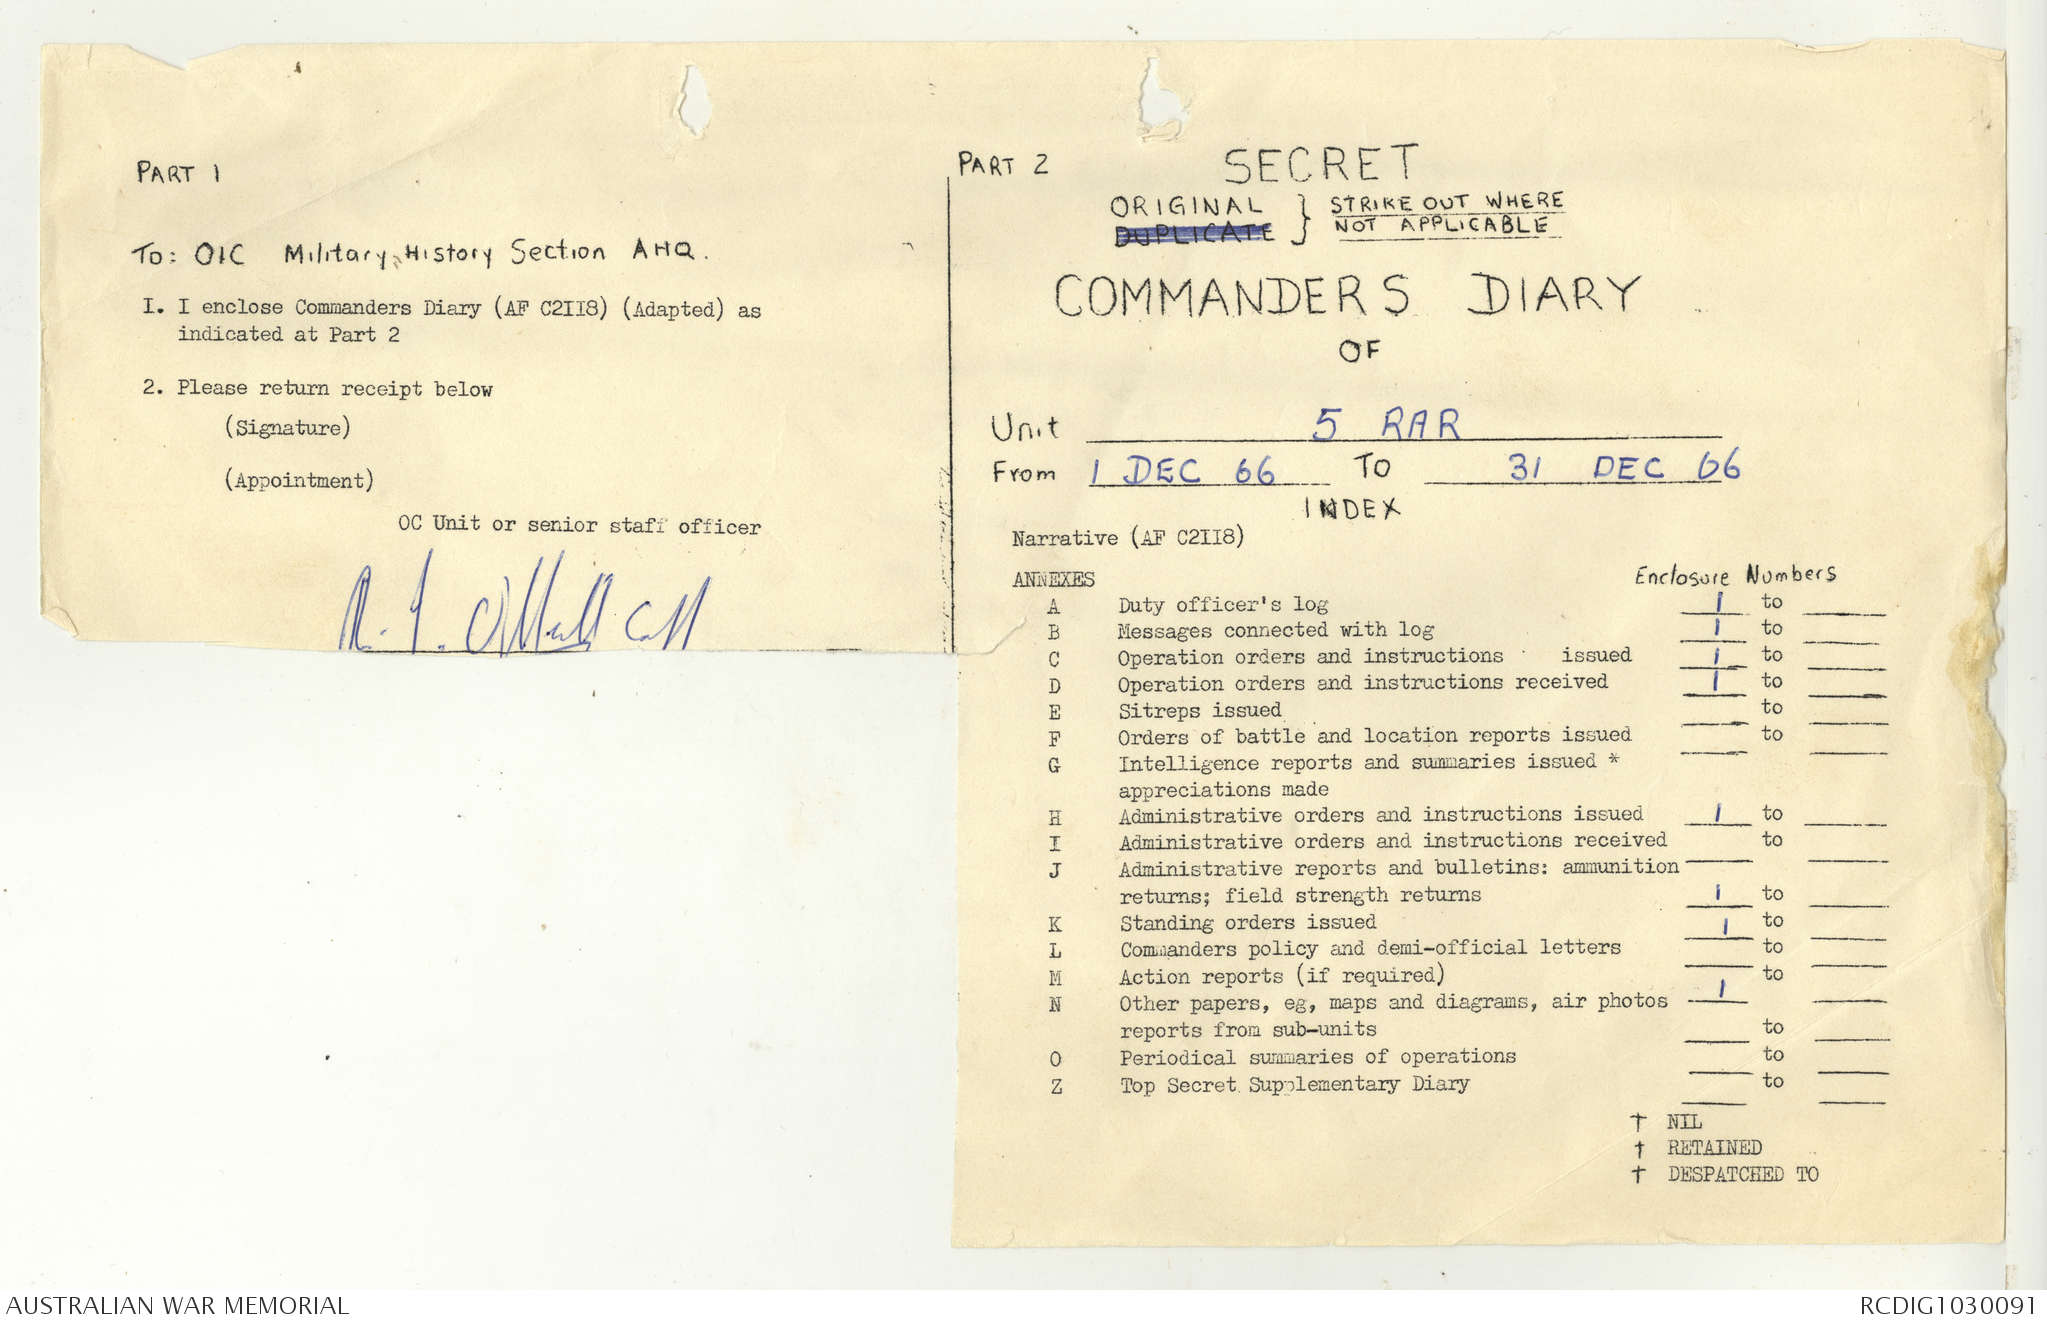 PART 1
To: OIC Military History Section AHQ.
I. I enclose Commanders Diary (AF C2II8) (Adapted) as
indicated at Part 2
2. Please return receipt below
(Signature)
(Appointment)
OC Unit or senior staff officer
PART 2
SECRET
ORIGINAL } STRIKE OUT WHERE
DUPLICATE } NOT APPLICABLE
COMMANDERS DIARY
OF
Unit 5 RAR
From 1 DEC 66 TO 31 DEC 66
INDEX
Narrative (AF C2II8)
ANNEXES Enclosure Numbers
A Duty officer's log 1 to
B Messages connected with log 1 to
C Operation orders and instructions issued 1 to
D Operation orders and instructions received 1 to
E Sitreps issued to
F Orders of battle and location reports issued to
G Intelligence reports and summaries issued *
appreciations made
H Administrative orders and instructions issued 1 to
I Administrative orders and instructions received to
J Administrative reports and bulletins: ammunition
returns; field strength returns 1 to
K Standing orders issued 1 to
L Commanders policy and demi-official letters to
M Action reports (if required) to
N Other papers, eg, maps and diagrams, air photos 1
reports from sub-units to
O Periodical summaries of operations to
Z Top Secret Supplementary Diary to
† NIL
† RETAINED
† DESPATCHED TO
AUSTRALIAN WAR MEMORIAL
RCDIG1030091